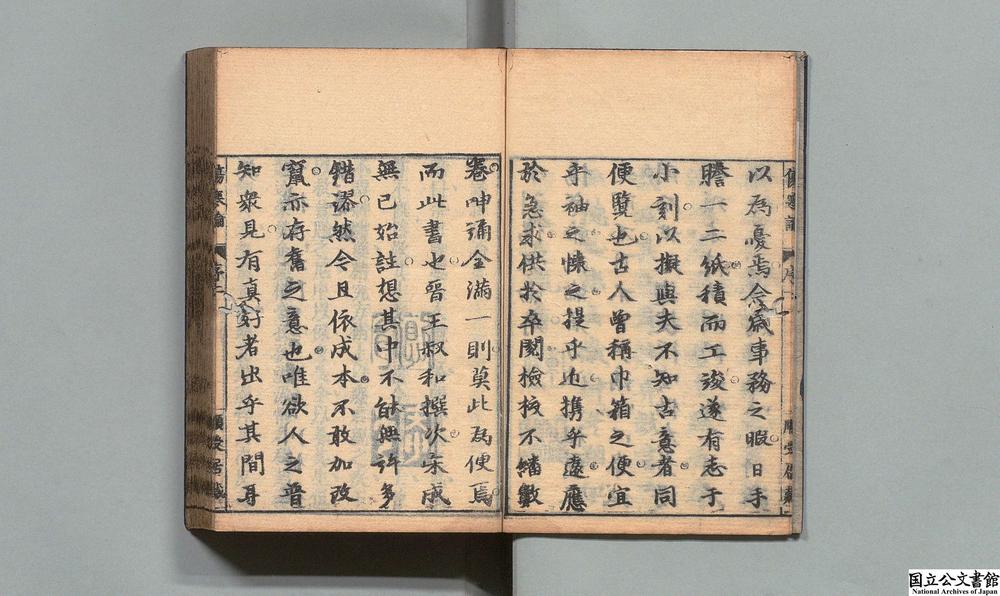 以為憂焉今歳事務之暇日手
謄一二紙積而工竣遂有志于
小刻以擬與夫不知古意者同
便覽也古人曾稱巾箱之便宜
乎袖之懐之提乎近携乎遠應
於急求供於卒閲檢挍不繙數
卷呻彌全滿一則莫此為便焉
而此書也晉王叔和撰次宋成
無已始註想其中不能無許多
錯謬然今且依成本不敢加改
竄亦存舊之意也唯欲人之普
知衆見有真好者出乎其間耳
國立公文書館
National Archives of Japan